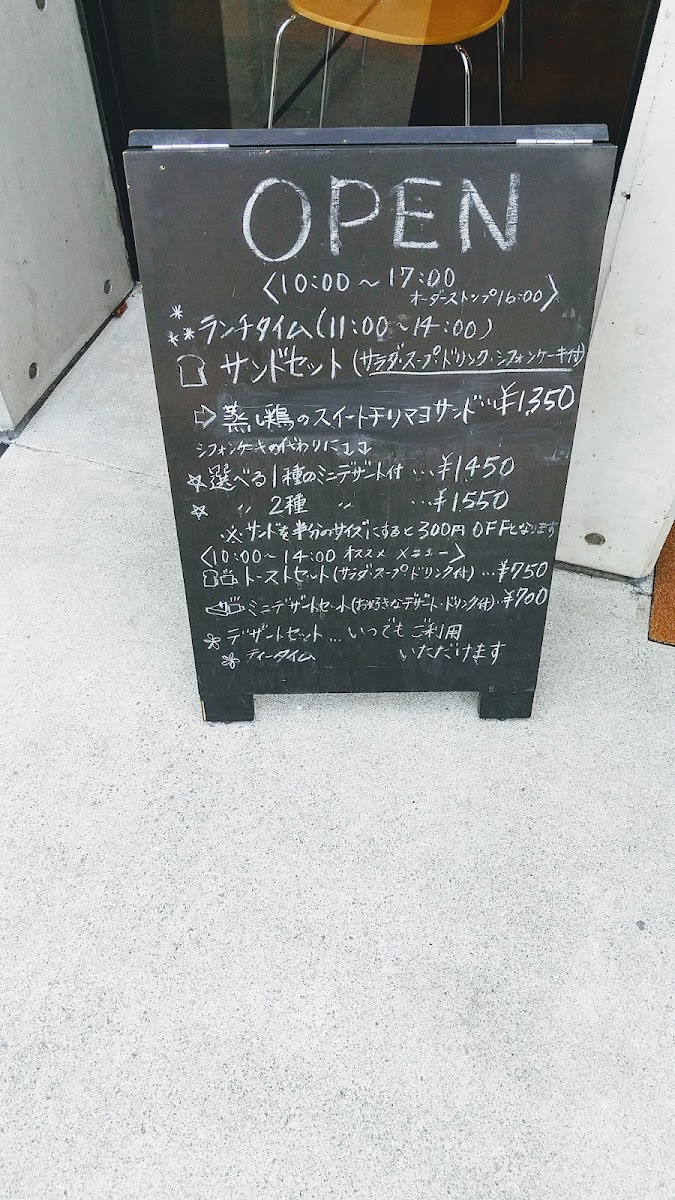 OPEN
〈10:00〜17:00
オーダーストップ16:00〉
ランチタイム(11:00〜14:00)
サンドセット(サラダ・スープ・ドリンク・シフォンケーキ付)
⇨蒸し鶏のスイートチリマヨサンド…¥1,350
シフォンケーキの代わりに↓↓
☆選べる1種のミニデザート付…¥1450
☆〃2種〃…¥1,550
※サンドを半分のサイズにすると300円OFFとなります
〈10:00〜14:00 オススメメニュー〉
トーストセット(サラダ・スープ・ドリンク付)…¥750
ミニデザートセット(お好きなデザート・ドリンク付)…¥700
デザートセット…いつでもご利用
ティータイム いただけます